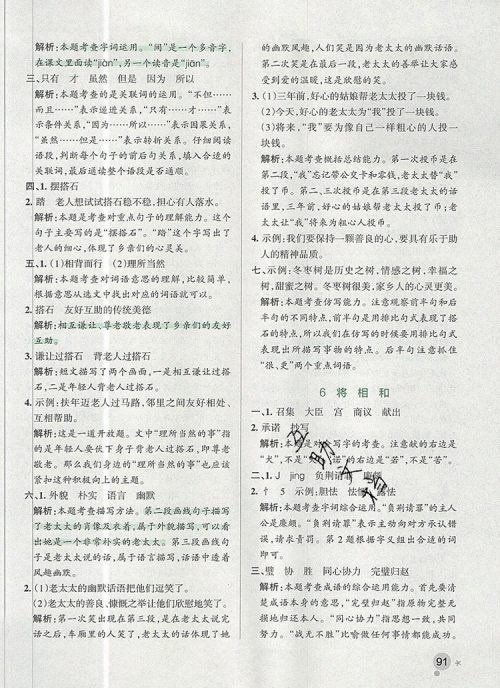 解析:本题考查字词运用。“间”是一个多音字,
在课文里面读“jiàn”,另一个读音是“jiān”。
三、只有 才 虽然 但是 因为 所以
解析:本题考查的是关联词的运用。“不但……
而且……”表示递进关系,“只有……才……”表
示条件关系,“因为……所以……”表示因果关系,
“虽然……但是……”表示转折关系。仔细阅读
语段,判断每个句子的前后句关系,填入合适的
关联词,最后读读整个语段是否通顺。
四、1. 摆搭石
2. 踏 老人想试试搭石稳不稳,担心有人落水。
解析:本题考查对重点句子的理解能力。这个
句子主要写的是“摆搭石”。“踏”这个字写出了
老人的细心,体现了乡亲们的心灵美。
五、1. (1)相背而行 (2)理所当然
解析:本题考查对词语意思的理解,比较简单,
根据意思从选文中找出对应的词语即可。
2. 搭石 友好互助的优美传统
解析:相互谦让、尊老敬老表现了乡亲们的友好
互助。
3. 谦让过搭石 背老人过搭石
解析:短文描写了两个画面,一是相互谦让过搭
石,二是年轻人背老人过搭石。
4. 示例:扶年迈老人过马路,邻里之间友好相处、
互相帮助。
解析:这是一道开放题。文中“理所当然的事”指
的是年轻人要伏下身子背老人过搭石,即尊老敬
老。我们身边的“理所当然的事”也应该紧扣这
种纯朴的美德来写。
六、1. 外貌 朴实 语言 幽默
解析:本题考查描写方法。第二段画线句子描写
了老太太的肖像及衣着,属于外貌描写,可以看
出她是一个非常朴实的老太太。第三段画线句
子是老太太说的话,属于语言描写,话语中尽显
风趣幽默。
2. (1)老太太的幽默话语把他们逗笑了。
(2)老太太的善良、慷慨之举让他们欣慰地笑了。
解析:本题考查概括能力。第一次笑是在老太太
说话之后,车厢里的人笑了,老太太的话体现了她
的幽默风趣,人们笑是因为老太太的幽默话语。
第二次笑是在最后一段,老太太的善举让大家感
受到爱的温暖,这是欣慰的笑。
3. (1)三年前,好心的姑娘帮老太太投了一块钱。
(2)今天,好心的老太太为“我”投了一块钱。
(3)将来,“我”要为像自己一样粗心的人投一
块钱。
解析:本题考查概括总结能力。第一次投币是在
第二段,“我”忘记带公交卡和零钱,老太太替“我”
投币。第二、三次投币是在第三段老太太的话
语里,三年前,好心的姑娘帮老太太投了币;老
太太让“我”以后再帮助其他人。
4. 示例:我们要保持一颗善良的心,要具有乐于助
人的精神品质。
七、示例:冬枣树是历史之树,情感之树,幸福之
树,甜蜜之树。冬枣树尽现家乡人的心灵美。
解析:本题考查仿写能力。注意观察前半句和后
半句的不同特点,前半句是用排比句式表现了搭
石的特点,所以我们在仿写的时候要用排比句式
描写出所写事物的特点。后半句注意抓住“很
不起眼”“尽现”等重点词语。
6 将 相 和
一、1. 召集 大臣 宫 商议 献出
2. 承诺 抄写
解析:本题考查对书写字的考查。注意献的右边是
“犬”,不是“大”;诺的右边是“若”,不是“苦”。
二、1. J jīng 负荆请罪 廉颇
解析:本题考查字词综合运用。“负荆请罪”的主人
公是廉颇。“负荆请罪”表示主动向对方承认错
误,请求责罚。第2题根据字义组出合适的词
即可。
三、璧 协 胜 同心协力 完璧归赵
解析:本题考查成语的综合运用能力。首先要清
楚成语本身的意思,“完璧归赵”指原物完整无
损地归还本人,“同心协力”指思想一致,共同努
力,“无坚不摧”比喻做任何事情都能成功。
91